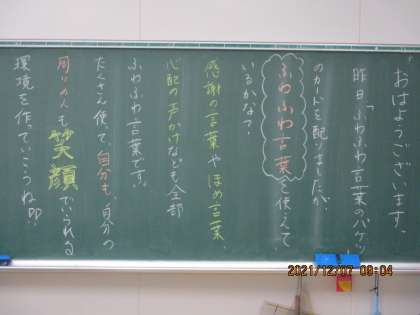 おはようございます。
昨日「ふわふわ言葉のバケツ」
のカードを配りましたが、
ふわふわ言葉を使えて
いるかな?
感謝の言葉やほめ言葉、
心配の声かけなども全部
ふわふわ言葉です。
たくさん使って、自分も、自分の
周りの人も笑顔でいられる
環境を作っていこうね
2021/12/07 09:04